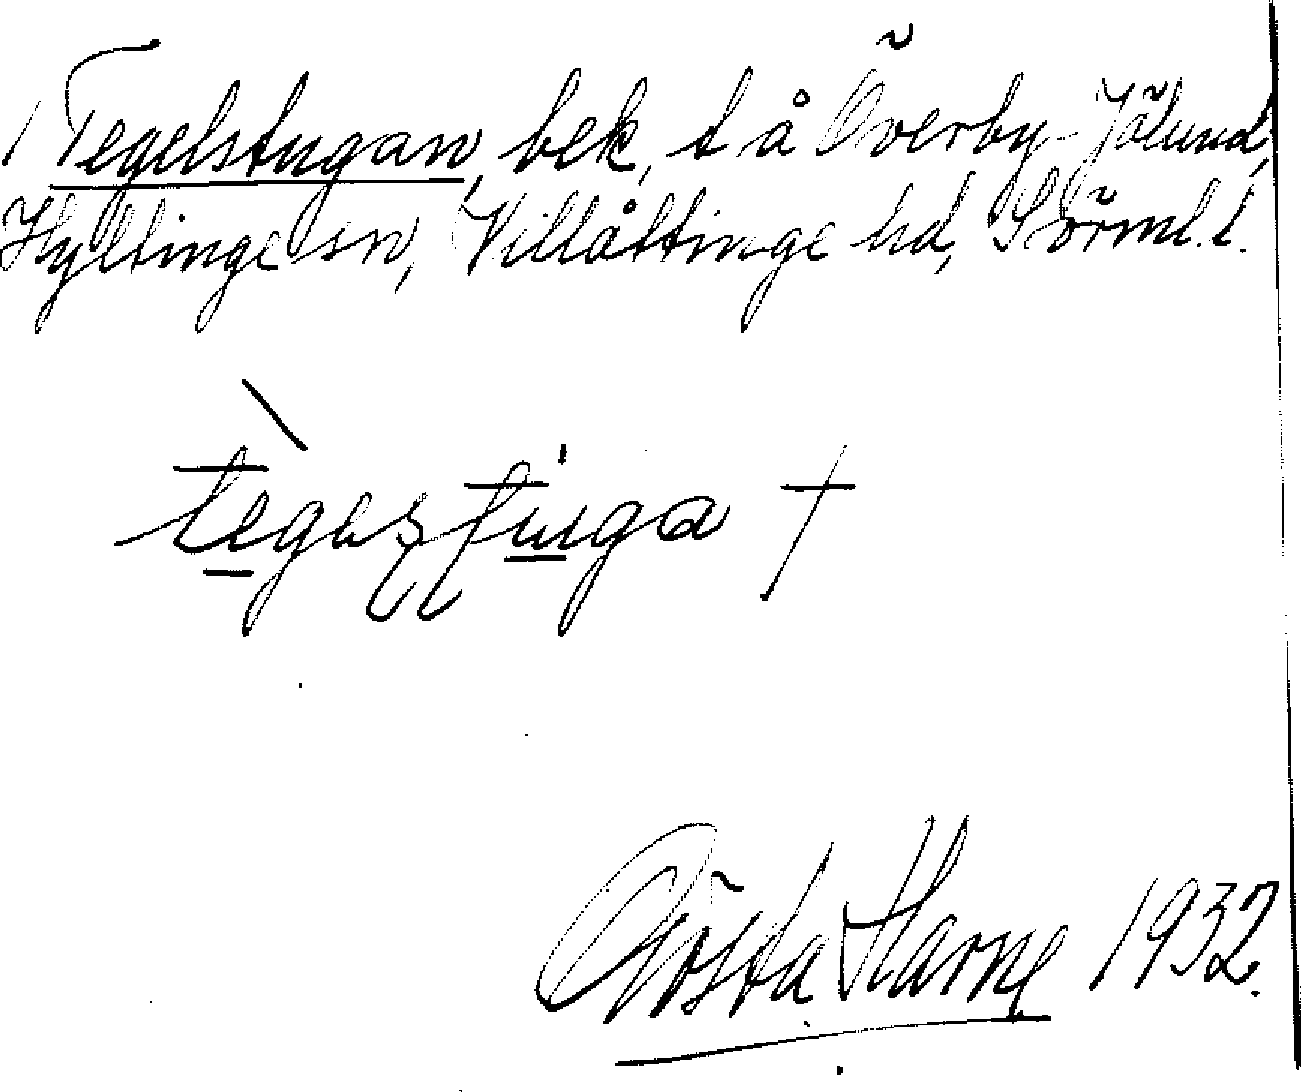 Tegelstugan, bek, t å Överby-Jölund,
Hyltinge sn, Villåttinge hd, Sörml. l.
Gösta Harne 1932.